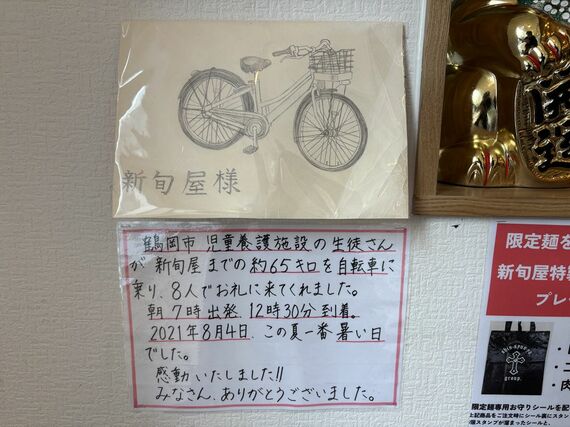 新旬屋様
鶴岡市 児童養護施設の生徒さん
が 新旬屋までの約65キロを自転車に
乗り、8人でお礼に来てくれました。
朝7時出発、12時30分到着。
2021年8月4日、この夏一番 暑い日
でした。
感動いたしました!!
みなさん、ありがとうございました。
限定麺を
新旬屋特製
プレ
group.
限定麺専用お守りシールを配